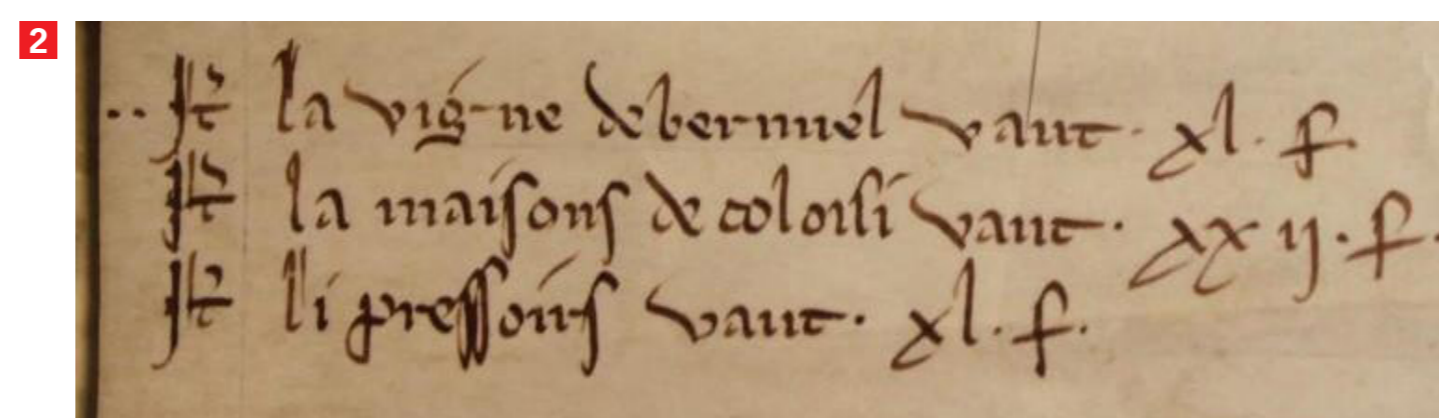 2
·· It la vigne de bernuel vaut · xl · f
It la maisons de coloisi vaut · xx ij · f ·
It li pressoirs vaut · xl · f ·